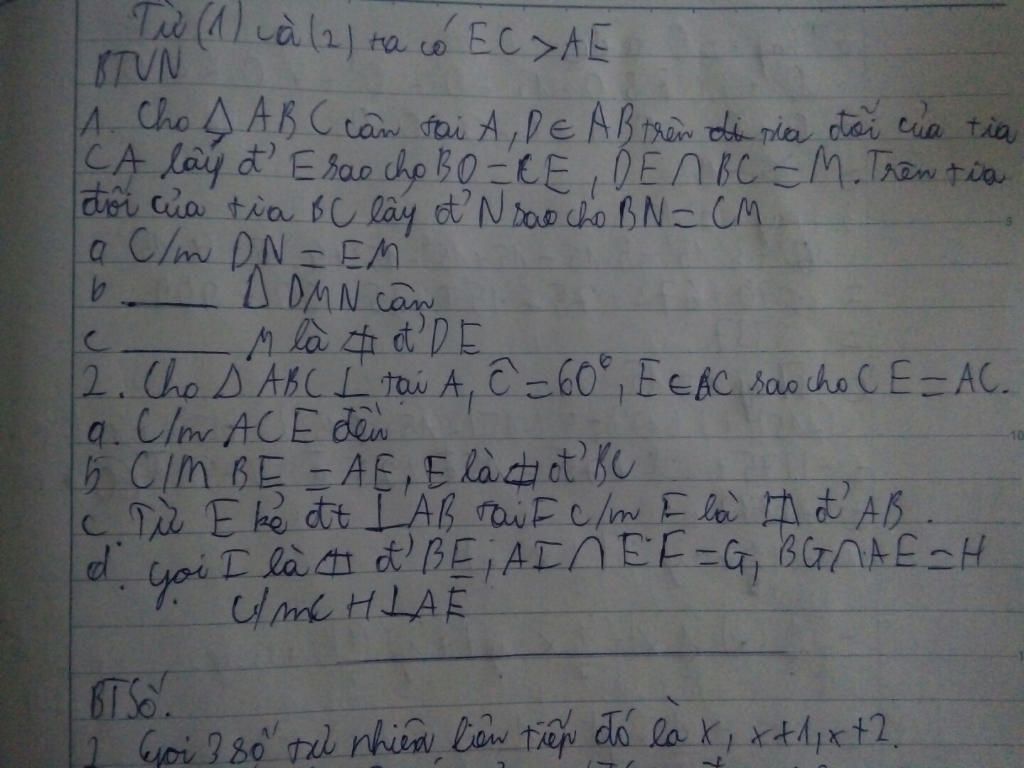 Từ (1) và (2) ta có EC > AE
BTVN
1. Cho Δ ABC cân tại A, D ∈ AB trên tia đối của tia
CA lấy đ' E sao cho BD = CE, DE ∩ BC = M. Trên tia
đối của tia BC lấy đ' N sao cho BN = CM
a C/m DN = EM
b ____ Δ DMN cân
c ____ M là đ' DE
2. Cho Δ ABC ⊥ tại A, Ĉ = 60°, E ∈ BC sao cho CE = AC.
a. C/m ACE đều
b C/M BE = AE, E là đ' BC
c. Từ E kẻ đt ⊥ AB tại F c/m F là đ' AB.
d. Gọi I là đ' BE; AI ∩ EF = G, BG ∩ AE = H
C/m CH ⊥ AE
BT Số.
1 Gọi 3 số tự nhiên liên tiếp đó là x, x+1, x+2.